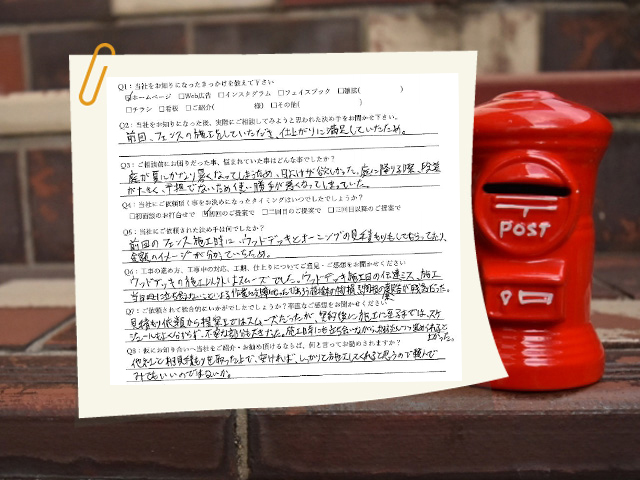 Q1：当社をお知りになったきっかけを教えて下さい
☑ホームページ □Web広告 □インスタグラム □フェイスブック □雑誌( )
□チラシ □看板 □ご紹介( 様) □その他( )
Q2：当社をお知りになった後、実際にご相談してみようと思われた決め手をお聞かせ下さい。
前回、フェンスの施工をしていただき、仕上がりに満足していたため。
Q3：ご相談前にお困りだった事、悩まれていた事はどんな事でしたか？
庭が夏にかなり暑くなってしまうため、日よけが欲しかった。庭に降りる際、段差
が大きく、平坦でないため使い勝手が悪くなってしまっていた。
Q4：当社にご依頼頂く事をお決めになったタイミングはいつでしたでしょうか？
□初面談のお打合せで ☑初回のご提案で □二回目のご提案で □三回目以降のご提案で
Q5：当社にご依頼された決め手は何でしたか？
前回のフェンス施工時に、ウッドデッキとオーニングの見積もりもしてもらっており、
金額のイメージが分かっていたため。
Q6：工事の進め方、工事中の対応、工期、仕上りについてご意見・ご感想をお聞かせください
ウッドデッキの施工以外はスムーズでした。ウッドデッキ施工日の伝達ミス、施工
当日
Q7：ご依頼されて総合的にいかがでしたでしょうか？率直なご感想をお聞かせください
見積り依頼から提案まではスムーズだったが、契約後に施工に至るまでは、スケ
ジュールもよく分からず、不安な部分も大きかった。施工時にも立ち会いながら
Q8：仮にお知り合いへ当社をご紹介・お勧め頂けるならば、何と言ってお勧めされますか？
他社と相見積もりを取った上で、安ければ、しっかりと施工してくれると思うので頼んで
みてもいいのではないか。
POST